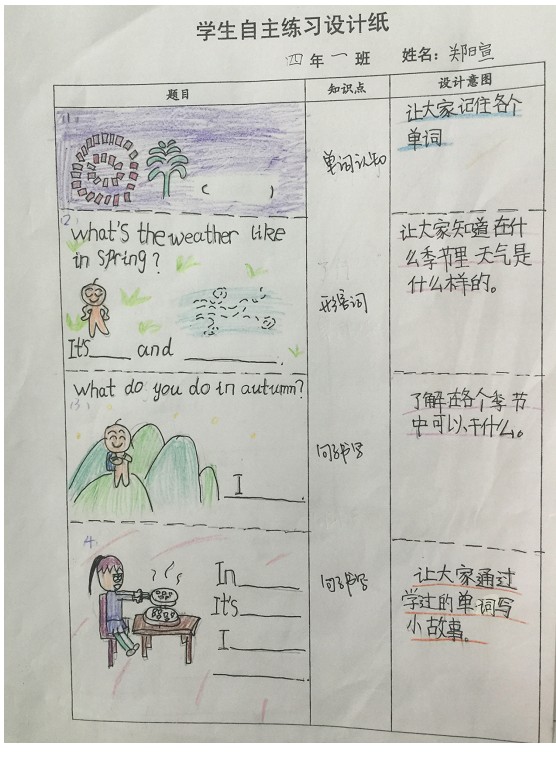 学生自主练习设计纸
四年一班 姓名：郑日宣
题目 知识点 设计意图
(1)
( )
单词认知
让大家记住各个
单词
2
what's the weather like
in spring?
It's____ and ________.
形容词
让大家知道在什
么季节里天气是
什么样的。
what do you do in autumn?
(3)
I________.
句子书写
了解在各个季节
中可以干什么。
4
In______
It's______
I______
______
句子书写
让大家通过
学过的单词写
小故事。